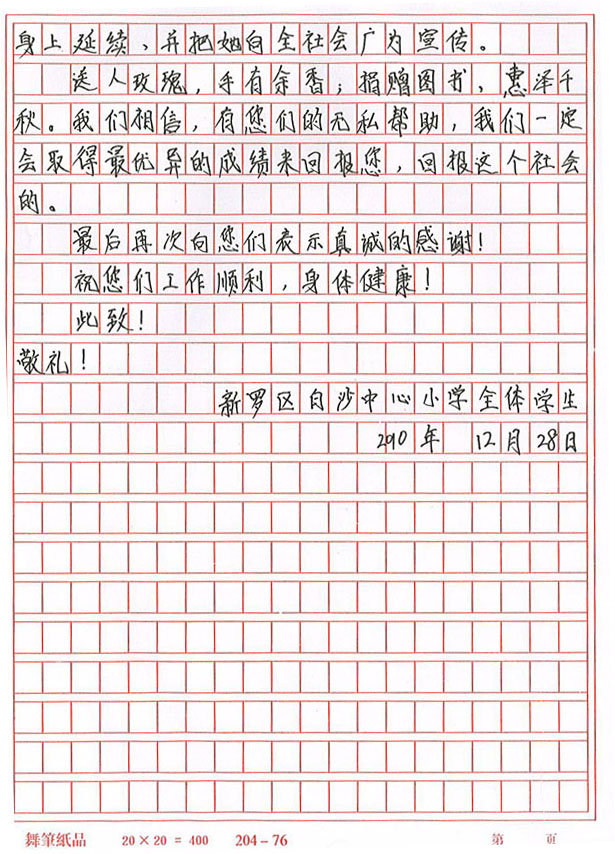 身上延续，并把她向全社会广为宣传。
送人玫瑰，手有余香；捐赠图书，惠泽千
秋。我们相信，有您们的无私帮助，我们一定
会取得最优异的成绩来回报您，回报这个社会
的。
最后再次向您们表示真诚的感谢！
祝您们工作顺利，身体健康！
此致！
敬礼！
新罗区白沙中心小学全体学生
2010年 12月28日
舞筆紙品 20×20=400 204-76 第 页